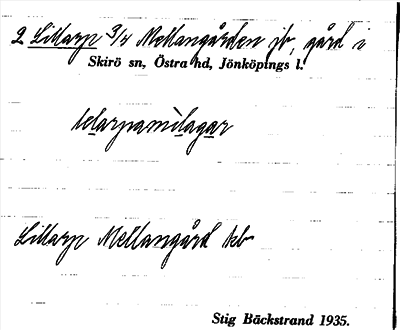 2 Lillarp 3/4 Mellangården jb, gård i
Skirö sn, Östra hd, Jönköpings l.
Lillarp Mellangård
Stig Bäckstrand 1935.